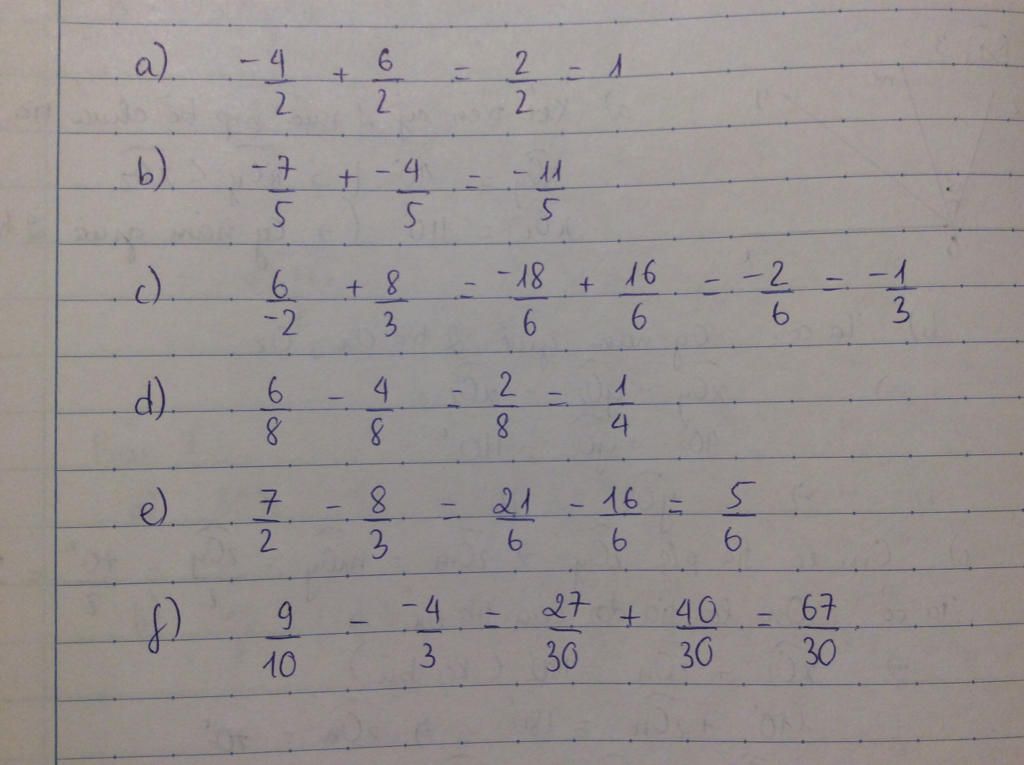 a) -4/2 + 6/2 = 2/2 = 1
b) -7/5 + -4/5 = -11/5
c) 6/-2 + 8/3 = -18/6 + 16/6 = -2/6 = -1/3
d) 6/8 - 4/8 = 2/8 = 1/4
e) 7/2 - 8/3 = 21/6 - 16/6 = 5/6
f) 9/10 - -4/3 = 27/30 + 40/30 = 67/30